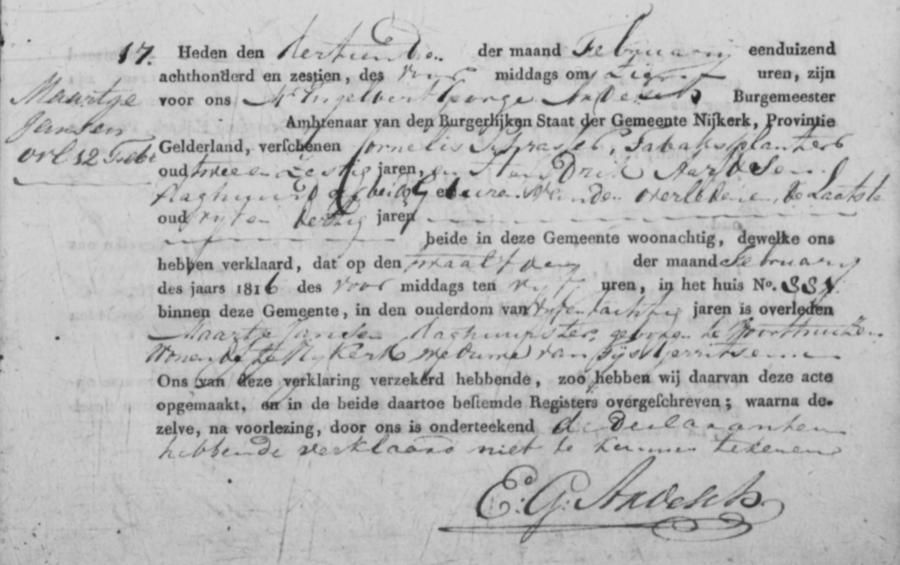 17. Heden den dertienden der maand Februarij eenduizend
achthonderd en zestien, des voor middags om uren, zijn
Maartje
Jansen
ovl 12 Febr
voor ons Engelbert George Ardesch Burgemeester
Ambtenaar van den Burgerlijken Staat der Gemeente Nijkerk, Provintie
Gelderland, verschenen Cornelis Tabaksplanter
oud twee en Zestig jaren, en Hendrik
Daghuurder beide gebuuren van den overledene, de Laatste
oud vijf en dertig jaren
beide in deze Gemeente woonachtig, dewelke ons
hebben verklaard, dat op den twaalfden der maand Februarij
des jaars 1816 des voor middags ten vijf uren, in het huis No. 881
binnen deze Gemeente, in den ouderdom van jaren is overleden
Maartje Jansen daghuurster, geboren te Voorthuizen
Wonende te Nijkerk weduwe van Gijsbert
Ons van deze verklaring verzekerd hebbende, zoo hebben wij daarvan deze acte
opgemaakt, en in de beide daartoe bestemde Registers overgeschreven; waarna de-
zelve, na voorlezing, door ons is onderteekend de declaranten
hebbende verklaard niet te kunnen tekenen
E. G. Ardesch